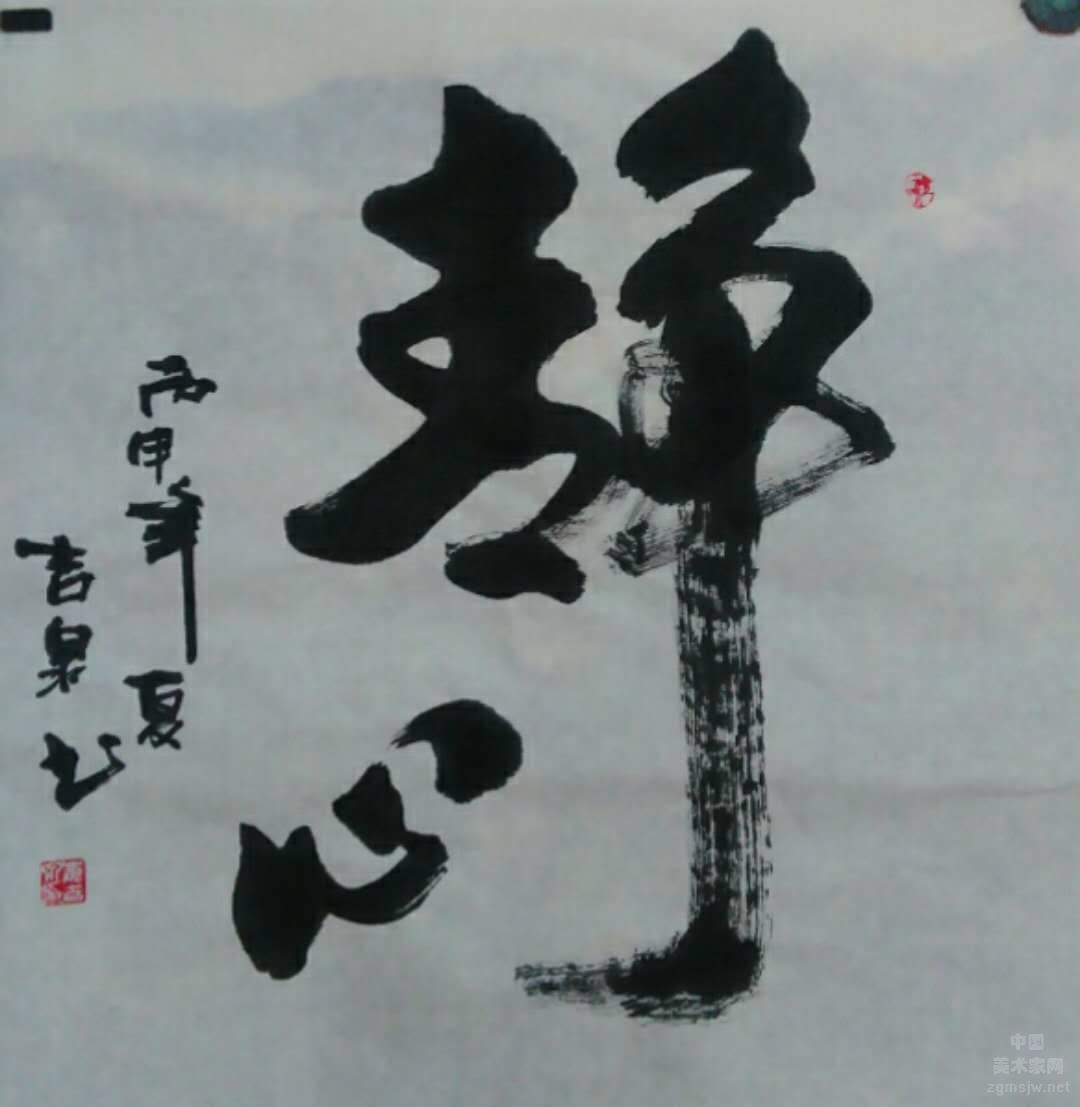 静心
丙申年夏
吉泉书
中国
美术家网
zgmsjw.net